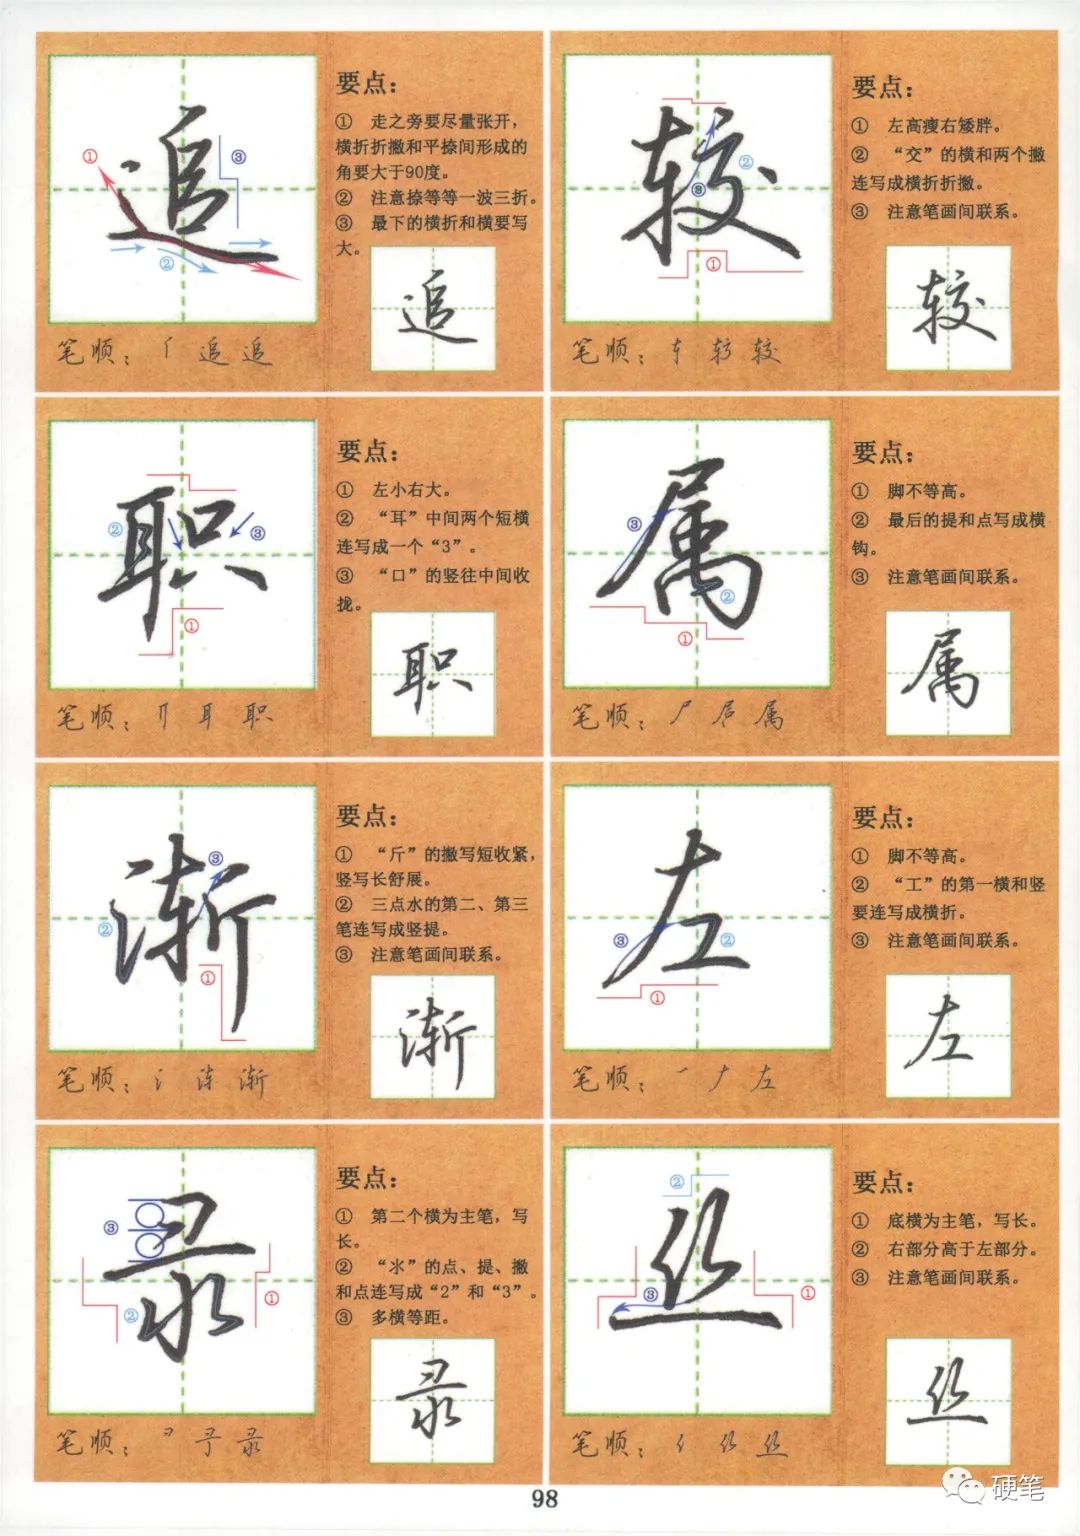 追
①
②
③
要点：
① 走之旁要尽量张开，
横折折撇和平捺间形成的
角要大于90度。
② 注意捺等等一波三折。
③ 最下的横折和横要写
大。
追
笔顺：亻 追 追
较
①
②
③
要点：
① 左高瘦右矮胖。
② “交”的横和两个撇
连写成横折折撇。
③ 注意笔画间联系。
较
笔顺：车 较 较
职
①
②
③
要点：
① 左小右大。
② “耳”中间两个短横
连写成一个“3”。
③ “口”的竖往中间收
拢。
职
笔顺：耳 职
属
①
②
③
要点：
① 脚不等高。
② 最后的提和点写成横
钩。
③ 注意笔画间联系。
属
笔顺：尸 属
渐
①
②
③
要点：
① “斤”的撇写短收紧，
竖写长舒展。
② 三点水的第二、第三
笔连写成竖提。
③ 注意笔画间联系。
渐
笔顺：氵 渐
左
①
②
③
要点：
① 脚不等高。
② “工”的第一横和竖
要连写成横折。
③ 注意笔画间联系。
左
笔顺：一 ナ 左
录
①
②
③
要点：
① 第二个横为主笔，写
长。
② “氺”的点、提、撇
和点连写成“2”和“3”。
③ 多横等距。
录
笔顺：录
丝
①
②
③
要点：
① 底横为主笔，写长。
② 右部分高于左部分。
③ 注意笔画间联系。
丝
笔顺：丝
98
硬笔